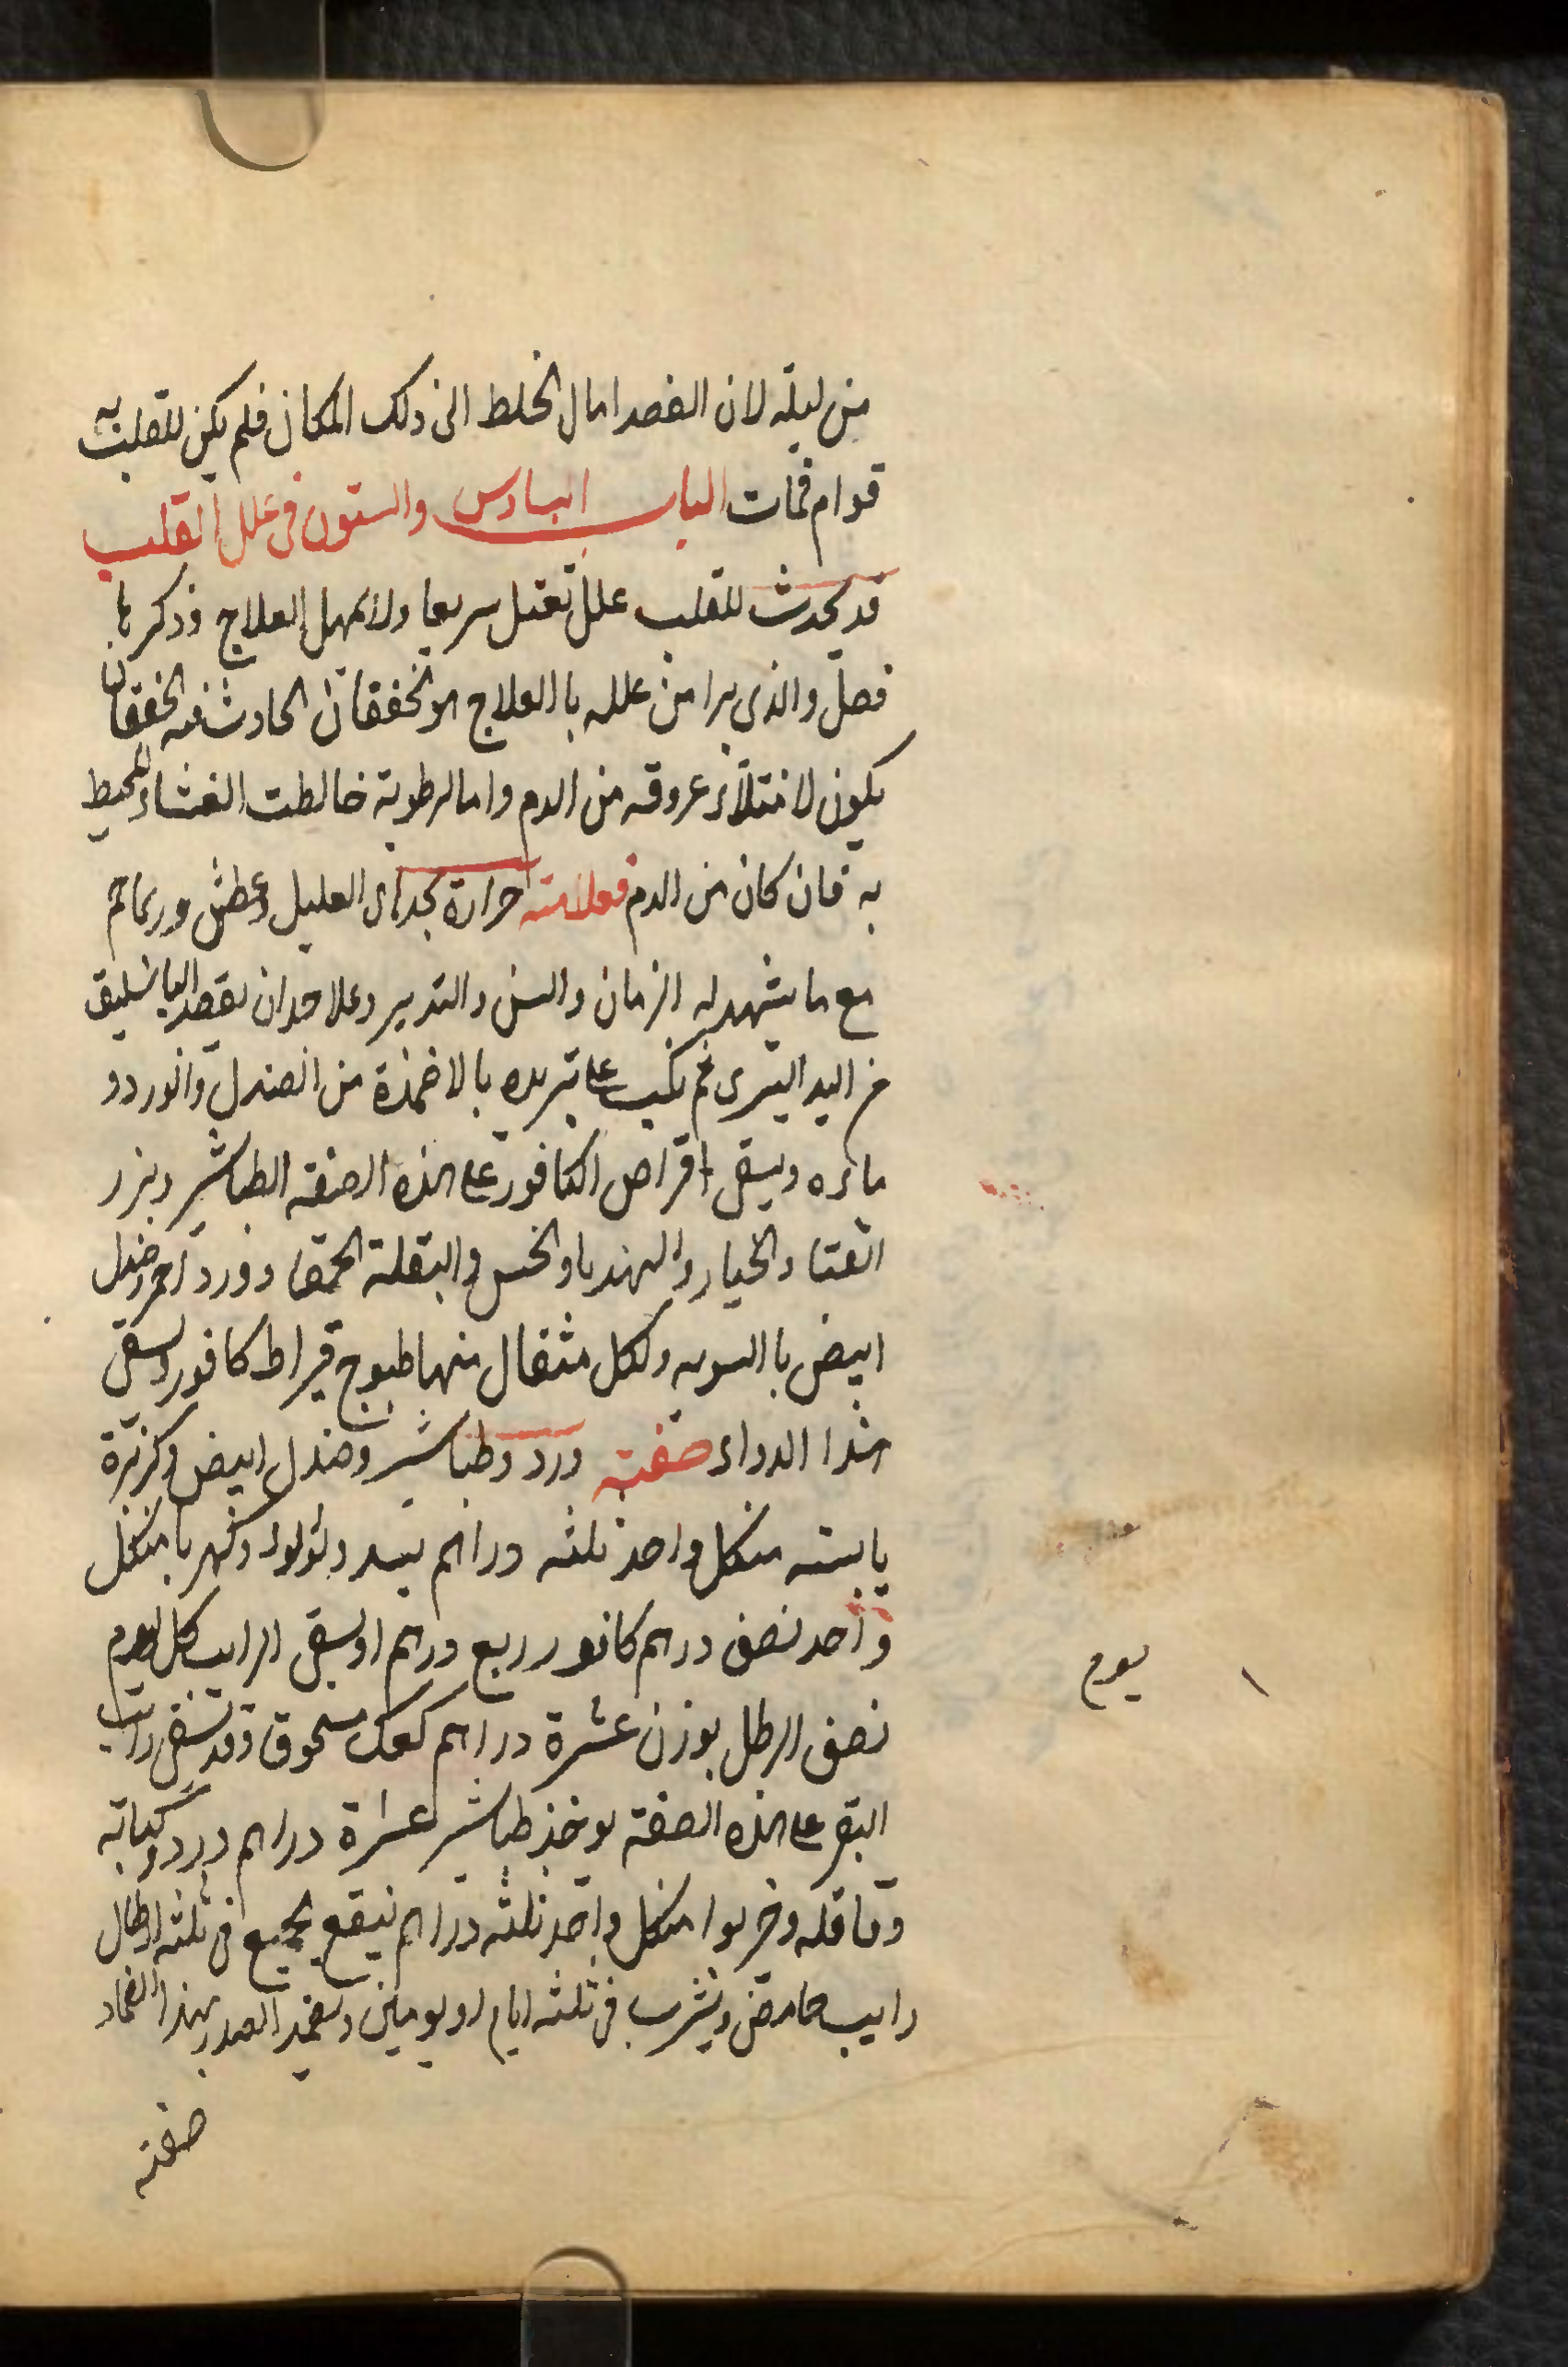 من ليلته لان الفصد امال الخلط الى ذلك المكان فلم يكن للقلب به
قوام فمات الباب السادس والستون فى علل القلب
قد يحدث للقلب علل تقتل سريعا ولا تمهل العلاج وذكرها
فصل والذى يبرا من علله باالعلاج هو الخفقان الحادث فيه الخفقان
يكون لامتلاء عروقه من الدم واما لرطوبة خالطت الغشاء المحيط
به فان كان من الدم فعلامته حرارة يجد اى العليل وعطش وربما حم
مع ما يشهد له الزمان والسن والتدبير وعلاجه ان يفصد الباسليق
من اليد اليسرى ثم يكب على تبريده بالاضمدة من الصندل والورد و
مائه ويسقى اقراص الكافور على هذه الصفة الطباشير وبزر
القثا والخيار والهندبا والخس والبقلة الحمقا وورد احمر وصندل
ابيض باالسويه ولكل مثقال منها طسوج قيراط كافور ويسقى
هذا الدواء صفته ورد وطباشير وصندل ابيض وكزبرة
يابسة من كل واحد ثلثه دراهم بسد ولؤلؤ وكهربا من كل
واحد نصف درهم كافور ربع درهم او يسقى الرايب كل يوم
نصف الرطل بوزن عشرة دراهم كعك مسحوق وقد يسقى رايب
البقر على هذه الصفة يوخذ طباشير عشرة دراهم ورد وكبابه
وقاقله وخربوا من كل واحد ثلثه دراهم ينقع الجميع فى ثلثه ارطال
رايب حامض ويشرب فى ثلثه ايام او يومين ويضمد الصدر بهذا الضماد
صفته
يوم